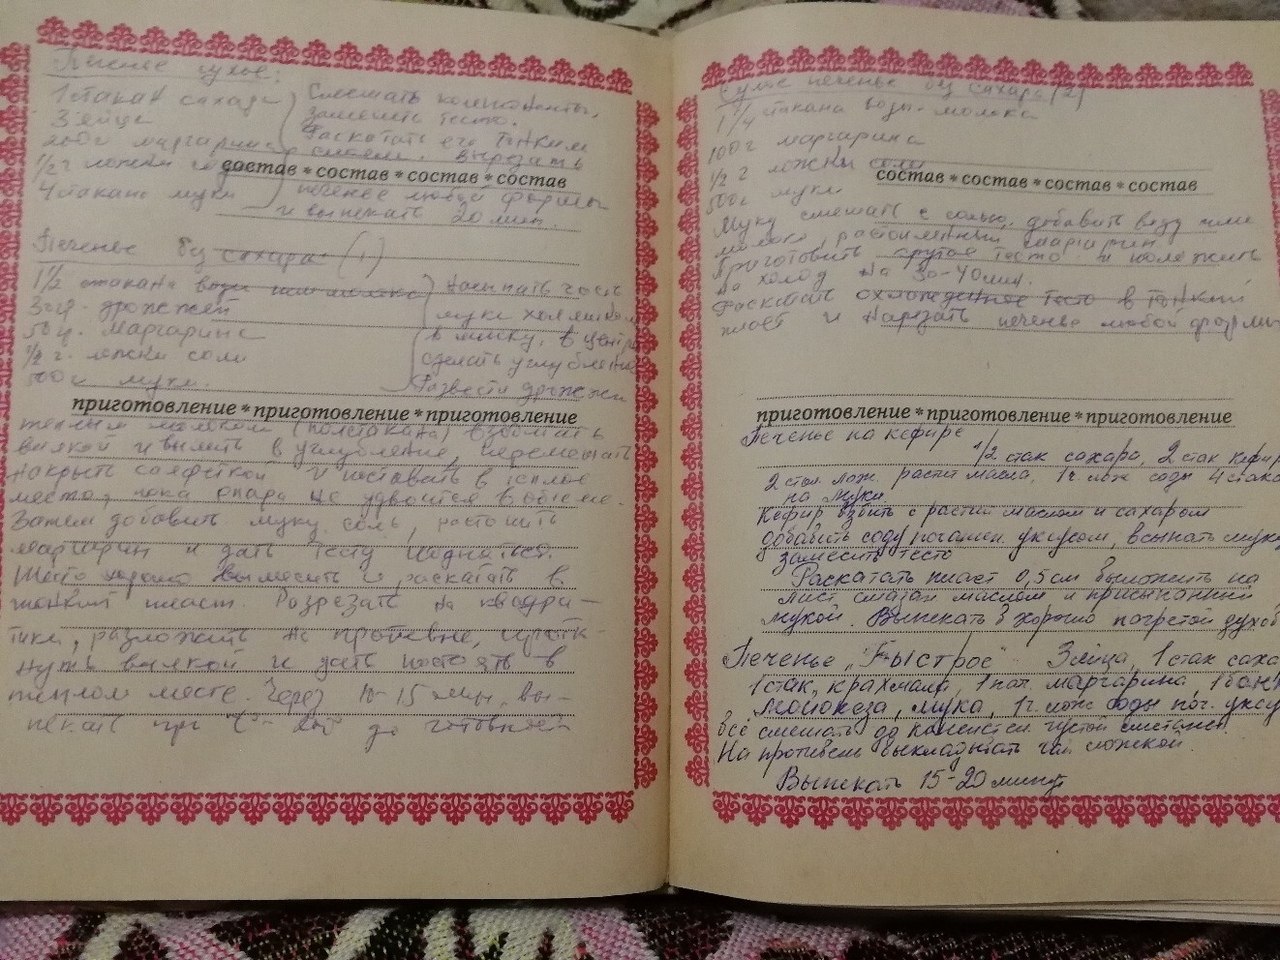 Печенье сухое:
1 стакан сахара
3 яйца
200 г маргарина
1/2 ч ложки соды
4 стакана муки
Смешать компоненты,
Замесить тесто.
Раскатать его тонким
слоем. Вырезать
состав * состав * состав * состав
печенье любой формы
и выпекать 20 мин.
Печенье без сахара (1)
1 1/2 стакана воды или молока
30 гр. дрожжей
50 гр. маргарина
1/2 ч. ложки соли
500 г муки.
Насыпать часть
муки холмиком
в миску, в центре
сделать углубление
Развести дрожжи
приготовление * приготовление * приготовление
теплым молоком (полстакана) взболтать
вилкой и вылить в углубление, перемешать
накрыть салфеткой и поставить в теплое
место, пока опара не удвоится в объёме.
Затем добавить муку, соль, растопить
маргарин и дать тесту подняться.
Тесто хорошо вымесить и раскатать в
тонкий пласт. Разрезать на квадра-
тики, разложить на противне, проtк-
нуть вилкой и дать постоять в
теплом месте. Через 10-15 мин, вы-
пекать при до готовности
Сухое печенье без сахара (2)
1 1/4 стакана воды-молока
100 г маргарина
1/2 ч ложки соли
состав * состав * состав * состав
500 г муки
Муку смешать с солью, добавить воду или
молоко, размягченный маргарин
Приготовить крутое тесто и положить
на холод на 30-40 мин.
Раскатать охлажденное тесто в тонкий
пласт и нарезать печенье любой формы
приготовление * приготовление * приготовление
Печенье на кефире
1/2 стак сахара, 2 стак кефир
2 стол. лож. растит масла, 1 ч. лож соды 4 стака
на муки
Кефир взбить с растит маслом и сахаром
добавить соду погашен. уксусом, всыпать муку
Замесить тесто
Раскатать пласт 0,5 см выложить на
лист смазан маслом и присыпанный
мукой. Выпекать в хорошо погретой духов
Печенье "Быстрое" 3 яйца, 1 стак саха
1 стак. крахмала, 1 пач. маргарина, 1 бан
майонеза, мука, 1 ч. лож соды пог. уксу
всё смешать до консистен. густой сметаны.
На противень выкладывать чай ложкой.
Выпекать 15-20 минут